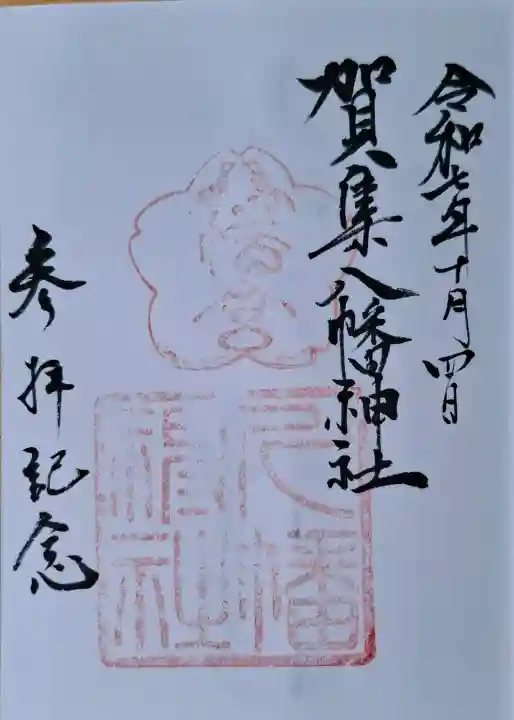 令和七年十月四日
賀集八幡神社
八幡宮
八幡神社
参拝記念